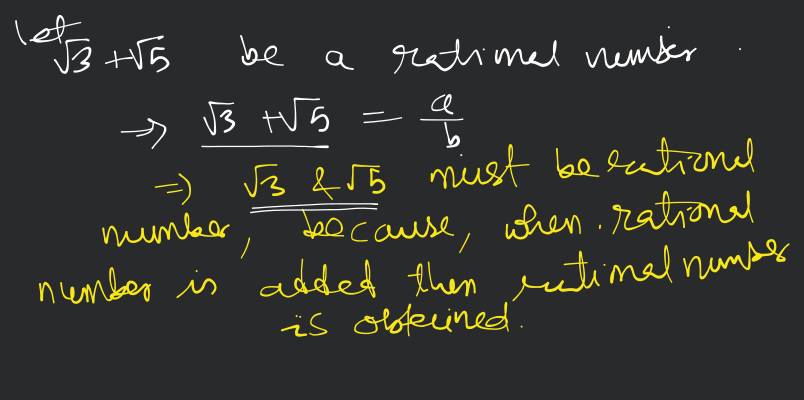 let √3 + √5 be a rational number.
⇒ √3 + √5 = a/b
⇒ √3 & √5 must be rational
number, because, when rational
number is added then rational number
is obtained.